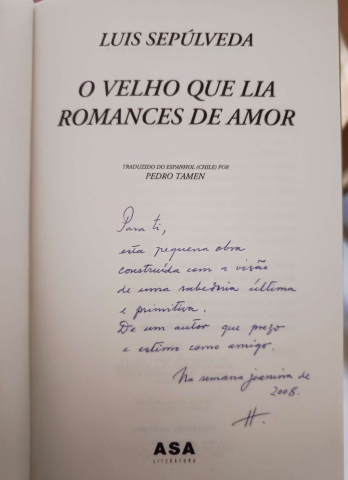 LUIS SEPÚLVEDA
O VELHO QUE LIA
ROMANCES DE AMOR
TRADUZIDO DO ESPANHOL (CHILE) POR
PEDRO TAMEN
Para ti,
esta pequena obra
construída com a visão
de uma sabedoria última
e primitiva.
De um autor que prezo
e estimo como amigo.
Na semana joanina de
2008.
H.
ASA
LITERATURA